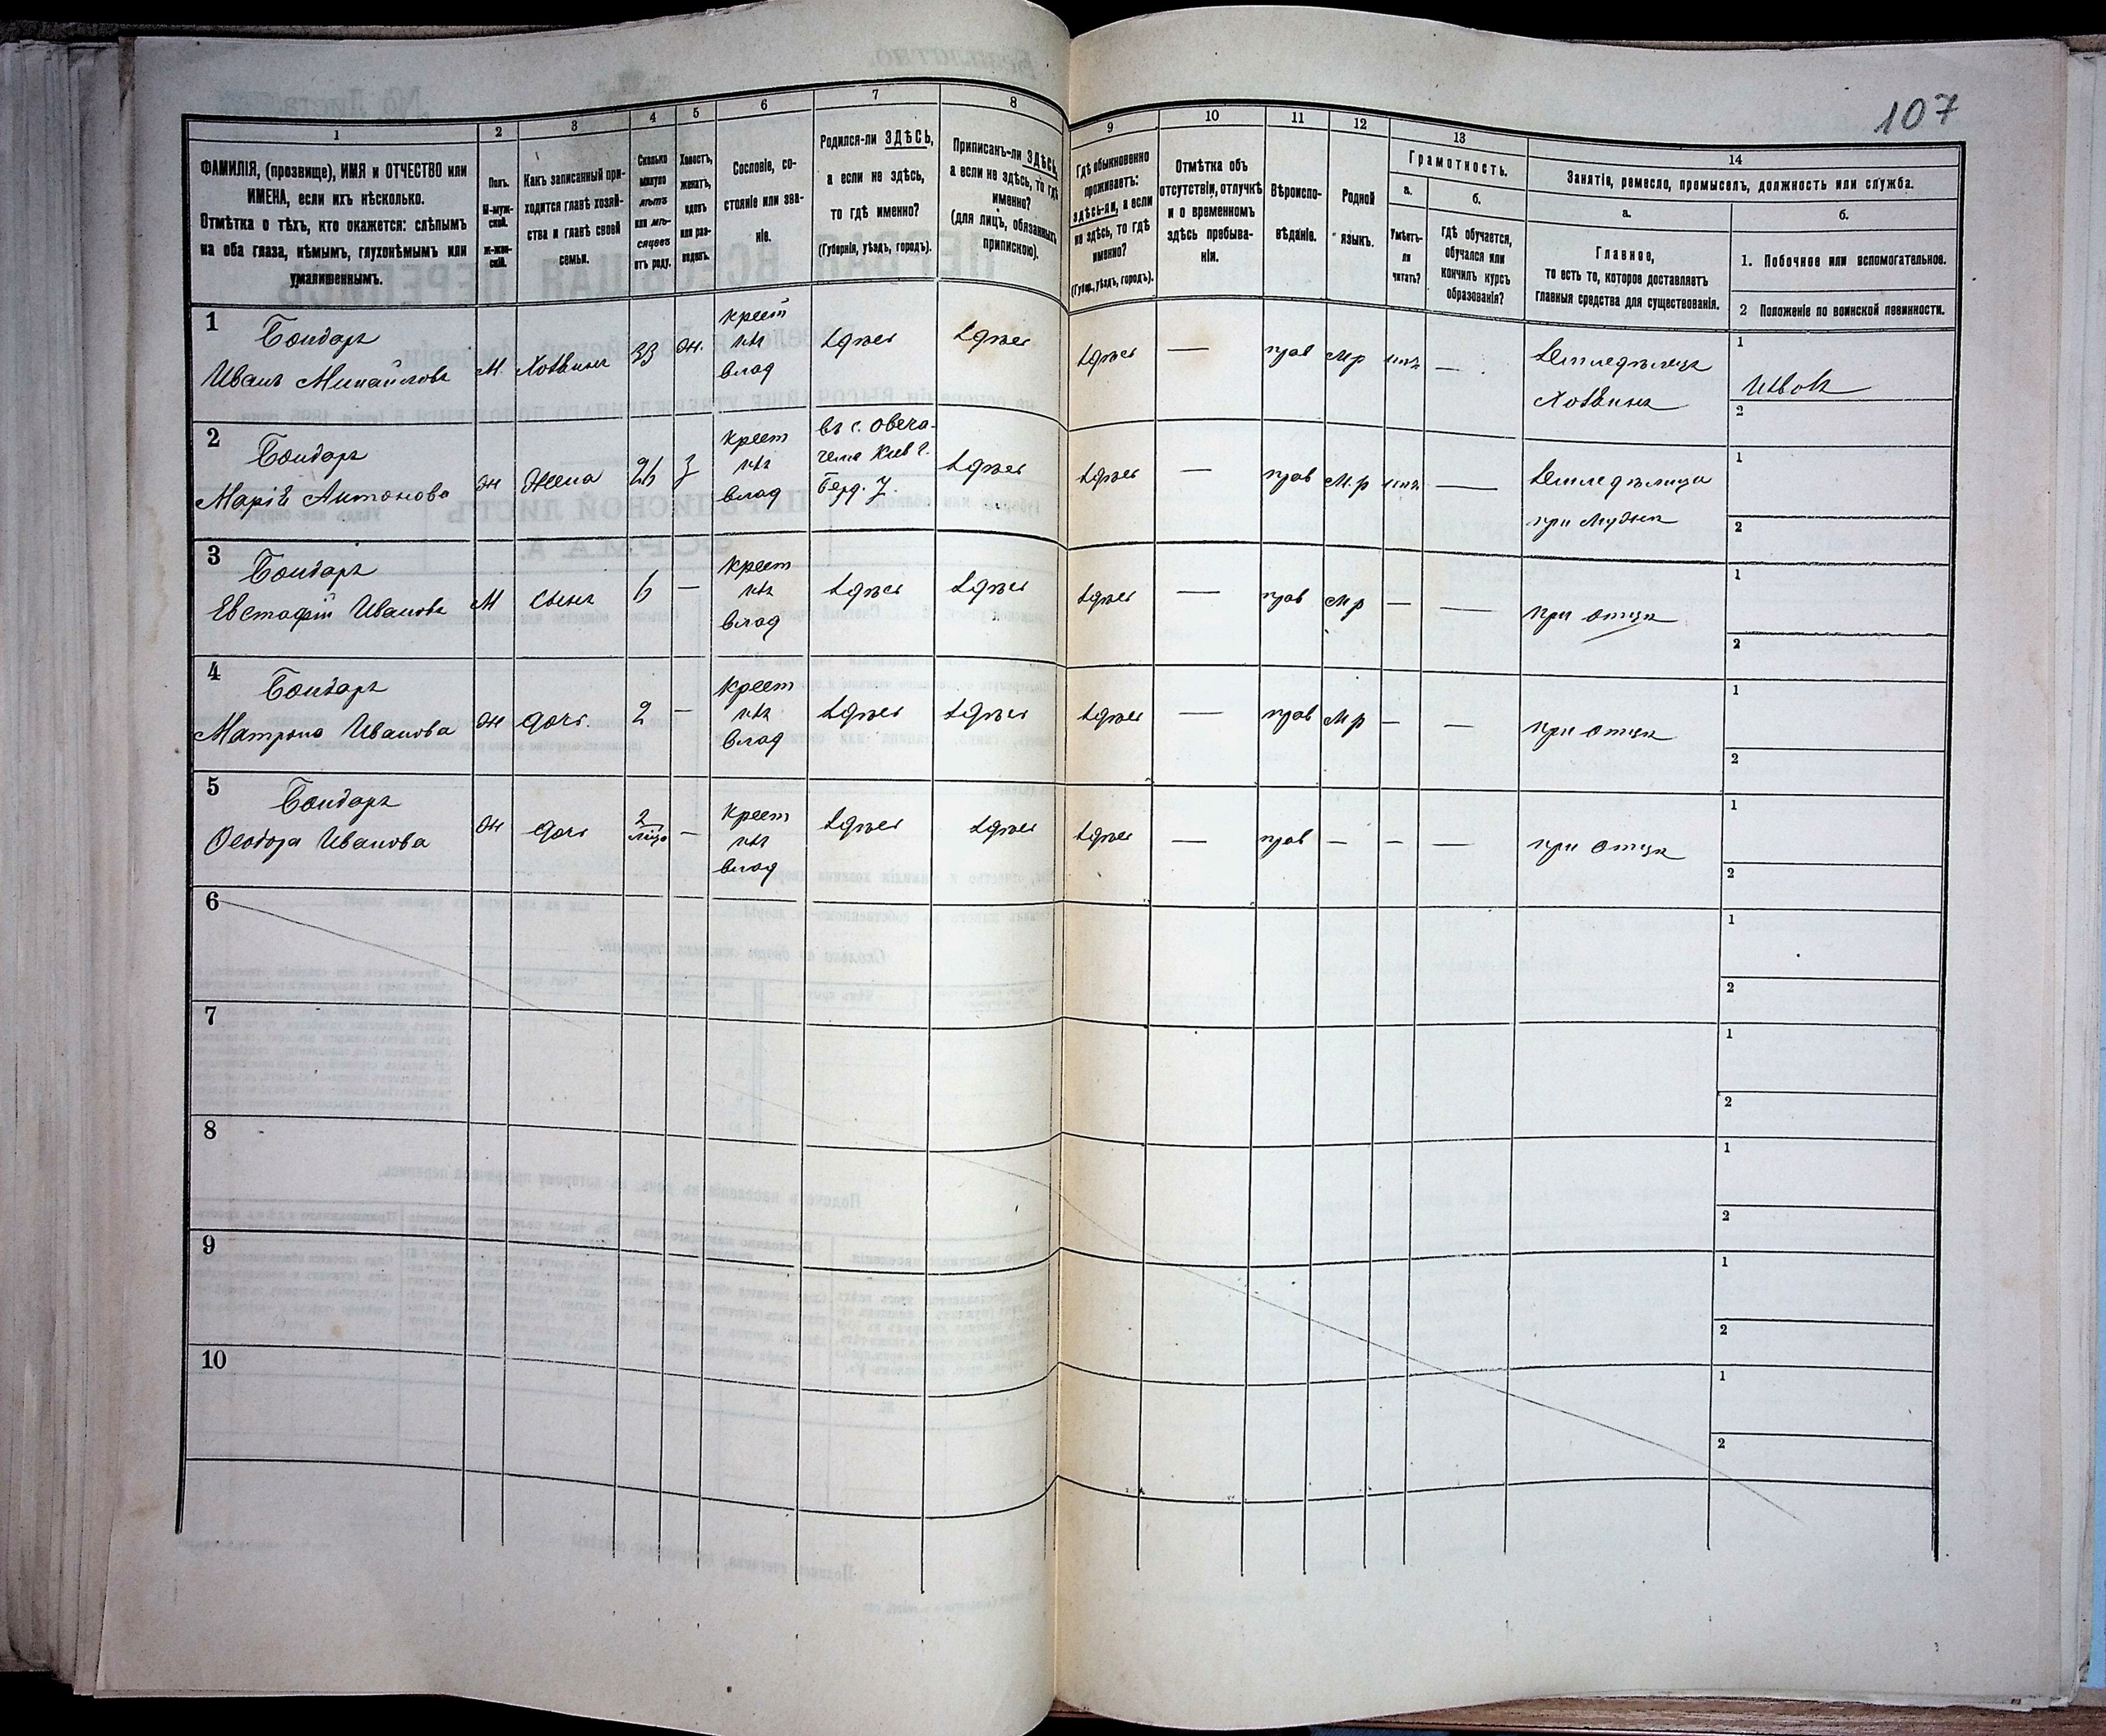 107
1
2
3
4
5
6
7
8
9
10
11
12
13
14
ФАМИЛІЯ, (прозвище), ИМЯ и ОТЧЕСТВО или
ИМЕНА, если ихъ нѣсколько.
Отмѣтка о тѣхъ, кто окажется: слѣпымъ
на оба глаза, нѣмымъ, глухонѣмымъ или
умалишеннымъ.
Полъ.
М-муж-
ской.
Ж-жен-
скій.
Какъ записанный при-
ходится главѣ хозяй-
ства и главѣ своей
семьи.
Сколько
минуло
лѣтъ
или мѣ-
сяцевъ
отъ роду.
Холостъ,
женатъ,
вдовъ
или раз-
веденъ.
Сословіе, со-
стояніе или зва-
ніе.
Родился-ли ЗДѢСЬ,
а если не здѣсь,
то гдѣ именно?
(Губернія, уѣздъ, городъ).
Приписанъ-ли ЗДѢСЬ,
а если не здѣсь, то гдѣ
именно?
(для лицъ, обязанныхъ
припискою).
Гдѣ обыкновенно
проживаетъ:
здѣсь-ли, а если
не здѣсь, то гдѣ
именно?
(Губер., уѣздъ, городъ).
Отмѣтка объ
отсутствіи, отлучкѣ
и о временномъ
здѣсь пребыва-
ніи.
Вѣроиспо-
вѣданіе.
Родной
языкъ.
Грамотность.
а.
Умѣетъ-
ли
читать?
б.
гдѣ обучается,
обучался или
кончилъ курсъ
образованія?
Занятіе, ремесло, промыселъ, должность или служба.
а.
Главное,
то есть то, которое доставляетъ
главныя средства для существованія.
б.
1. Побочное или вспомогательное.
2 Положеніе по воинской повинности.
1
Бондарь
Иванъ Михайловъ
М.
Хозяинъ
33
ж.
крест
изъ
влад
здѣсь
здѣсь
здѣсь
—
прав
мр
нѣтъ
—
Земледѣлецъ
Хозяинъ
1
2
2
Бондарь
Марія Антонова
ж
жена
26
з
крест
изъ
влад
въ с. Овеча-
чема Кіев г.
Берд. у.
здѣсь
здѣсь
—
прав
м.р
нѣтъ
—
Земледѣлица
при мужѣ
1
2
3
Бондарь
Евстафій Ивановъ
М
сынъ
6
—
крест
изъ
влад
здѣсь
здѣсь
здѣсь
—
прав
мр
—
—
при отцѣ
1
2
4
Бондарь
Матрона Иванова
ж
дочь.
2
—
крест
изъ
влад
здѣсь
здѣсь
здѣсь
—
прав
мр
—
—
при отцѣ
1
2
5
Бондарь
Ѳеодора Иванова
ж
дочь
2
—
крест
изъ
влад
здѣсь
здѣсь
здѣсь
—
прав
—
—
—
при отцѣ
1
2
6
1
2
7
1
2
8
1
2
9
1
2
10
1
2